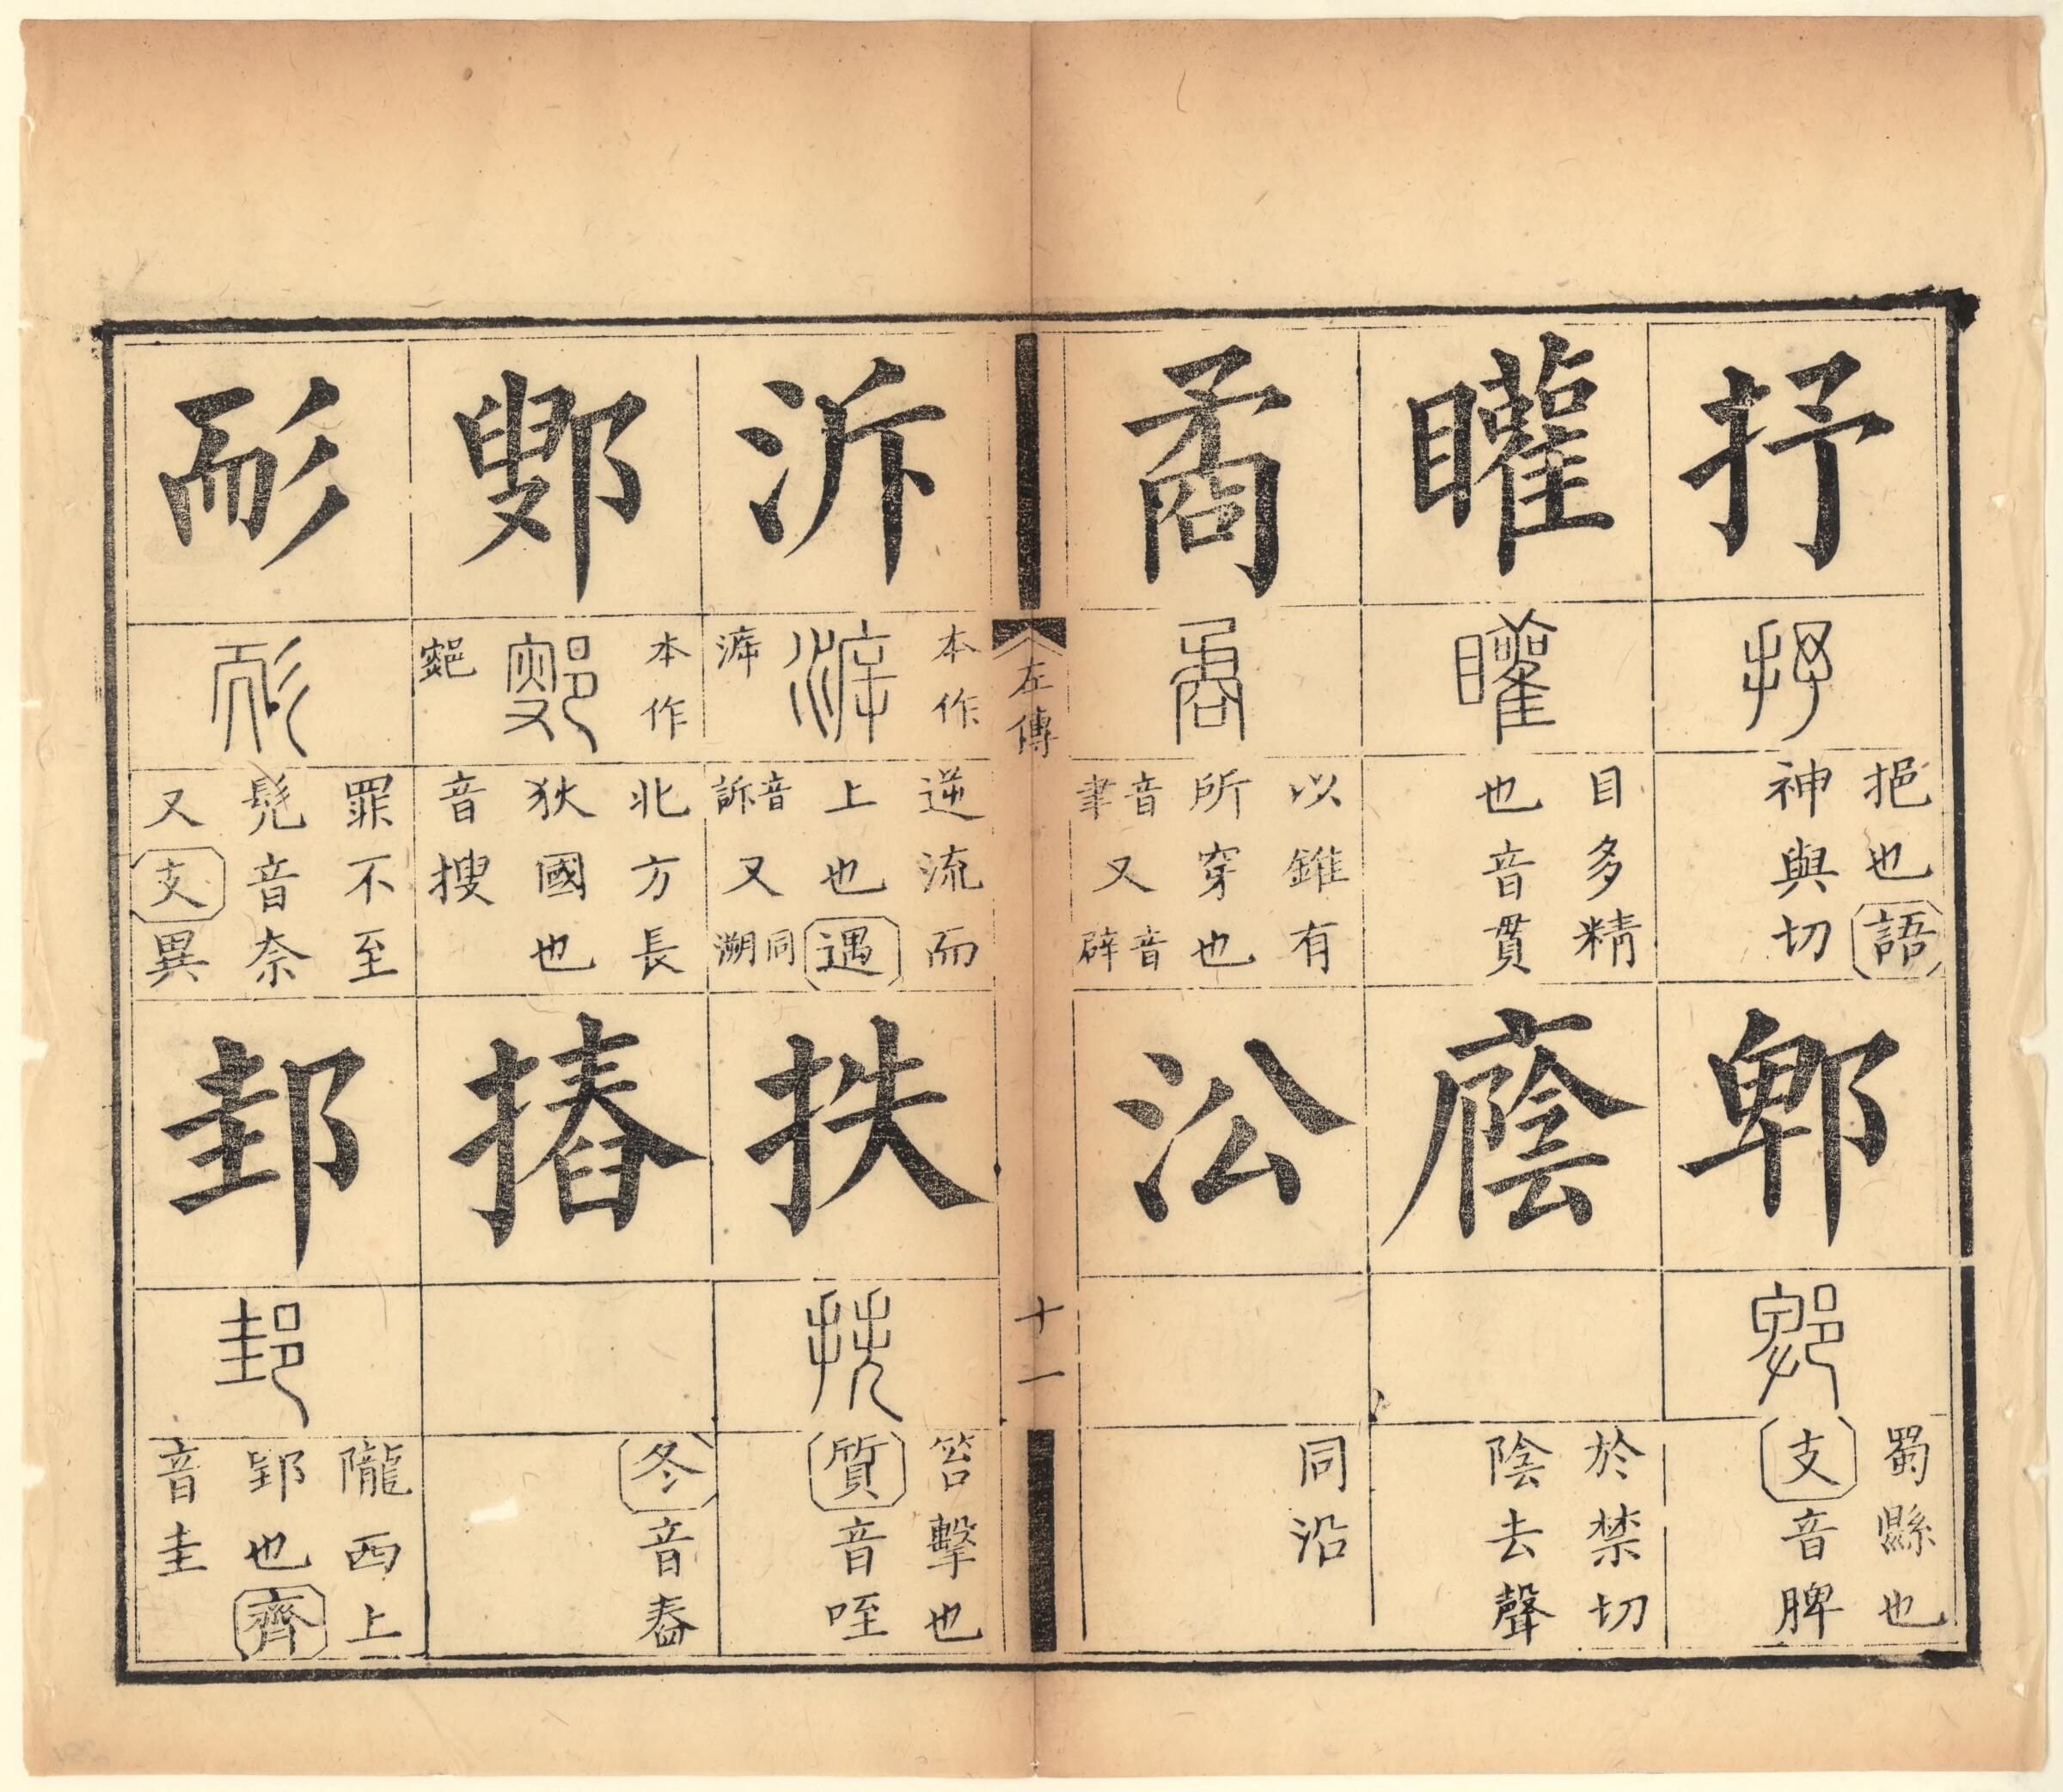 抒
抒
挹也語
神與切
郫
郫
蜀縣也
支音脾
矔
矔
目多精
也音貫
廕
於禁切
陰去聲
矞
矞
以錐有
所穿也
音聿又音辟
㳂
同沿
左傳
十一
泝
本作
逆流而
上也遇
音訴又同溯
抶
抶
笞擊也
質音咥
鄋
本作
北方長
狄國也
音搜
摏
冬音舂
耏
耏
罪不至
髠音奈
又支異
邽
邽
隴西上
邽也齊
音圭